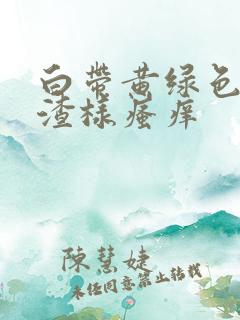 白带黄绿色
渣样瘙痒
陈慧婕
未经同意禁止转载